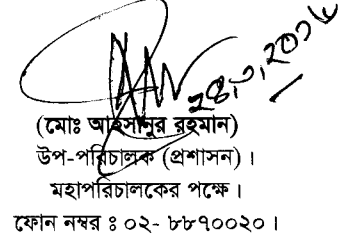 (মোঃ আহসানুর রহমান)
উপ-পরিচালক (প্রশাসন) ।
মহাপরিচালকের পক্ষে ।
ফোন নম্বর ঃ ০২- ৮৮৭০০২০ ।